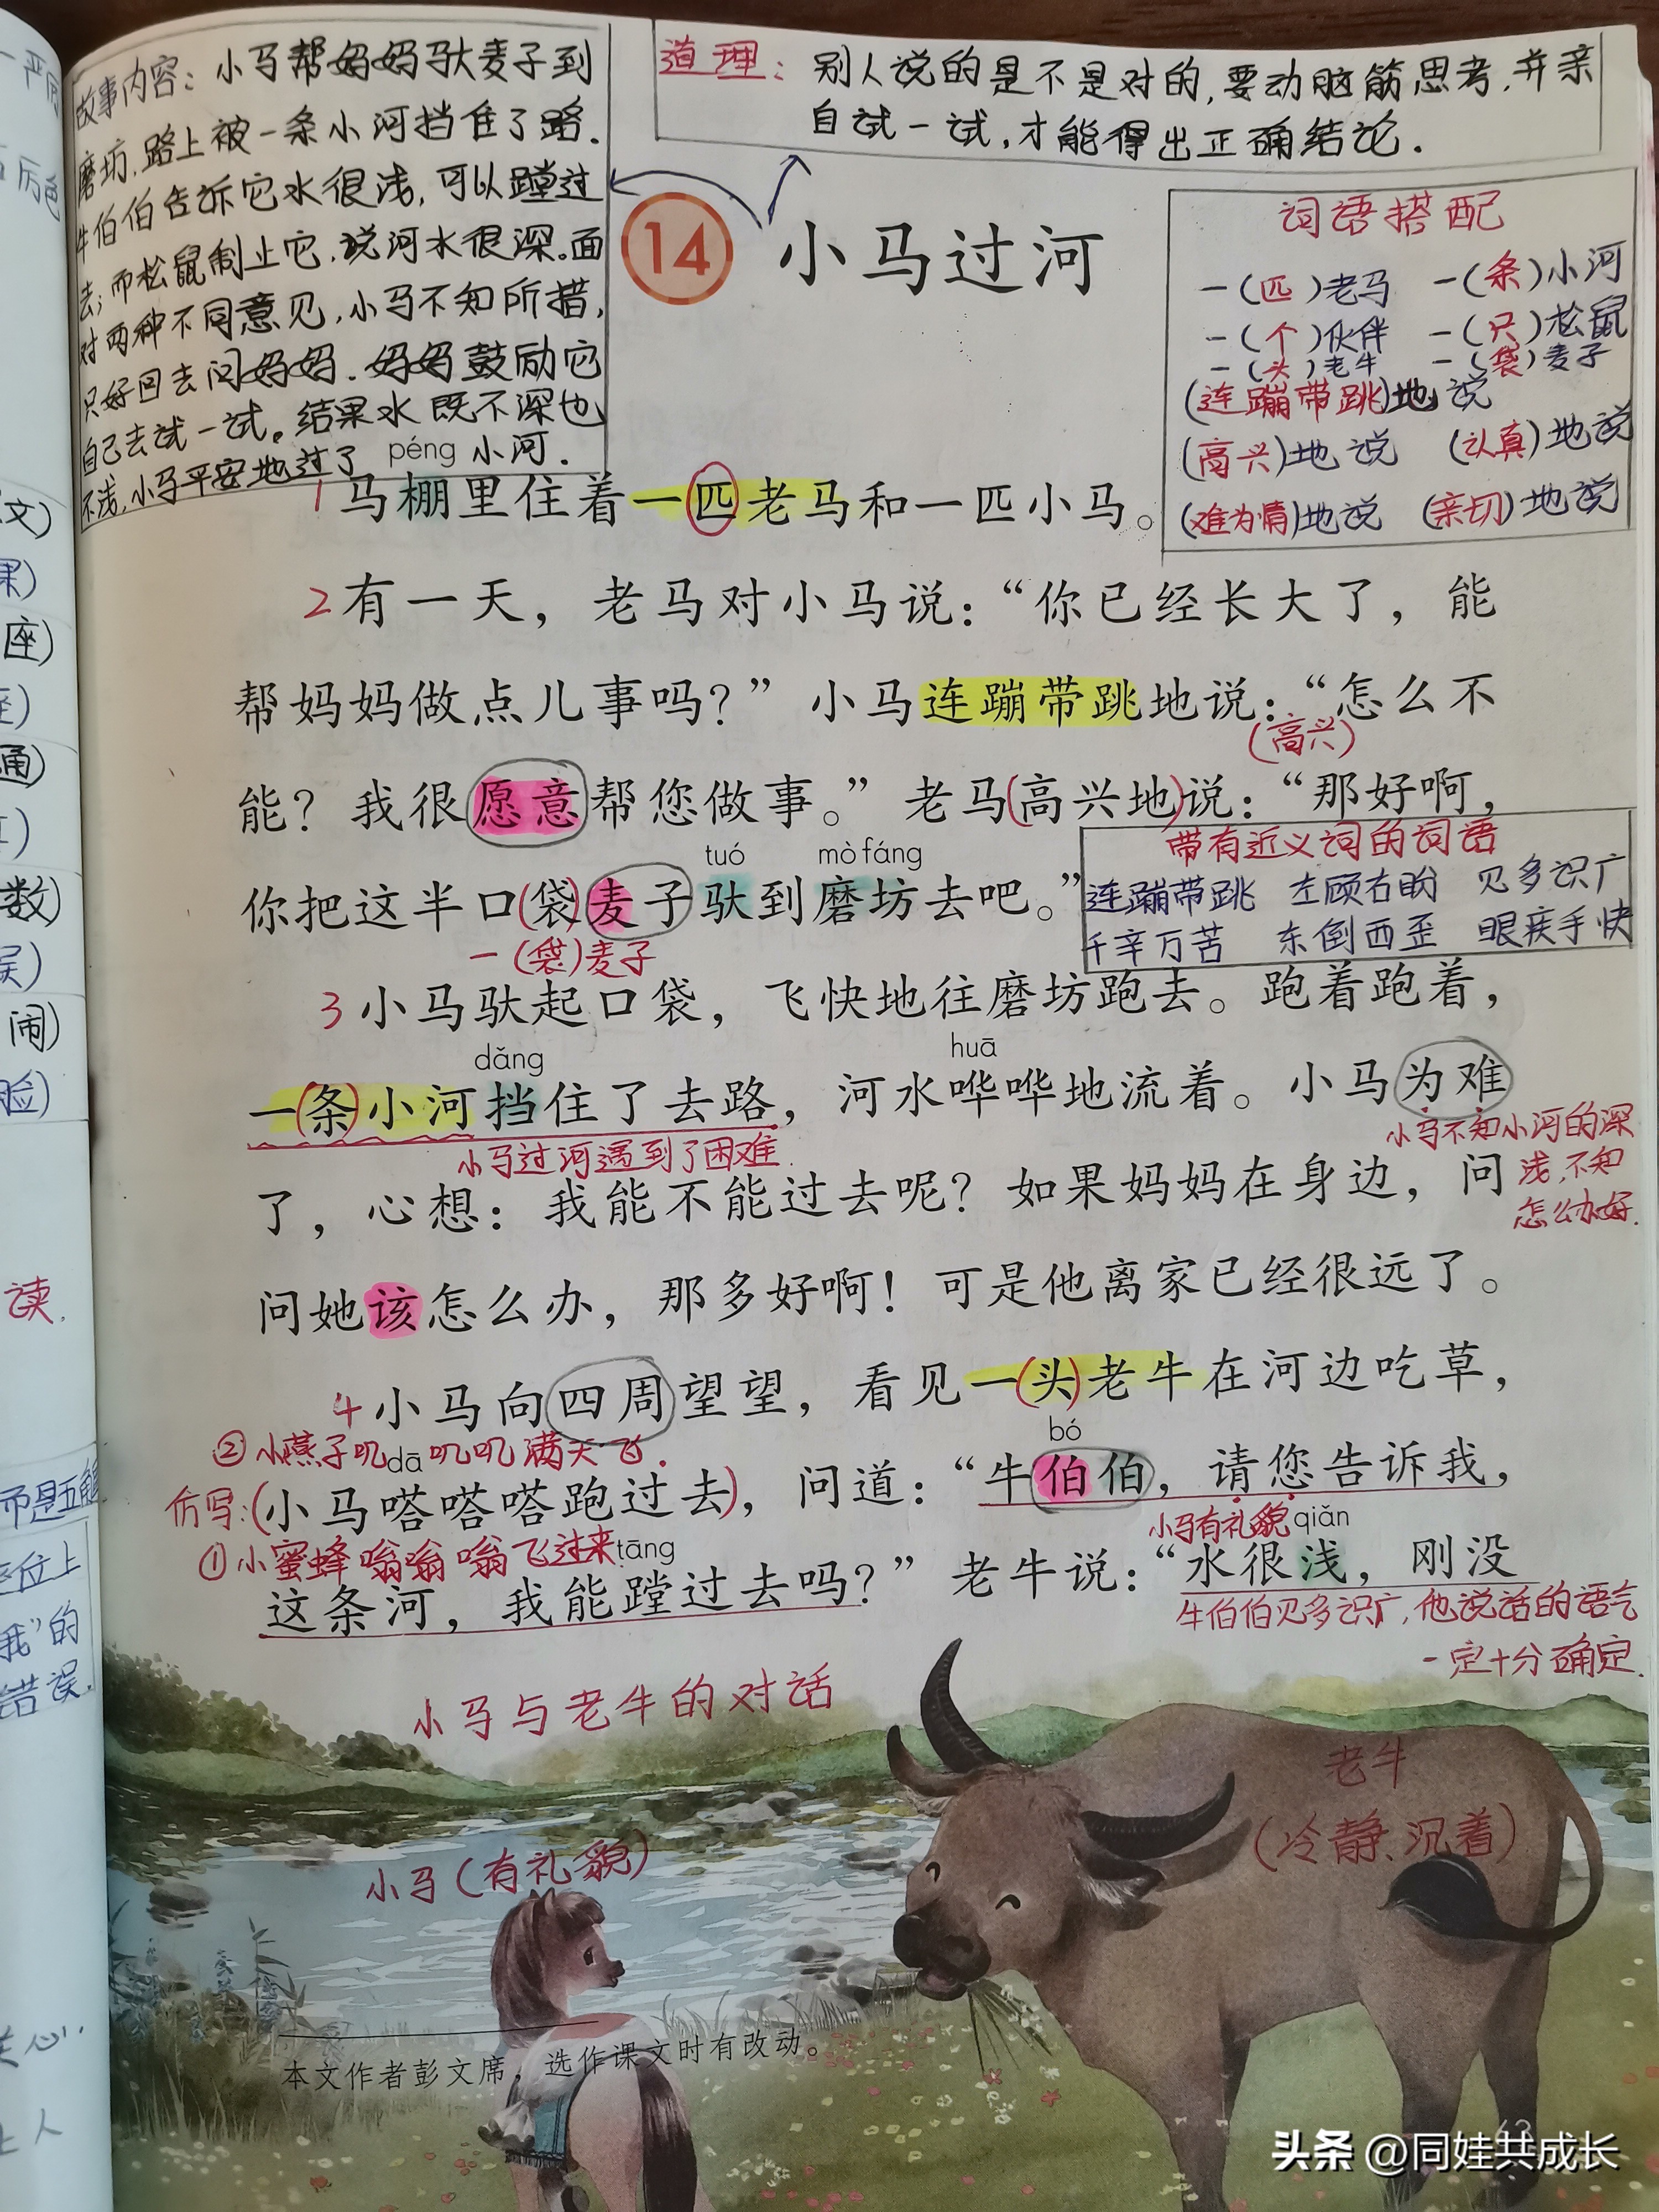 故事内容：小马帮妈妈驮麦子到
磨坊,路上被一条小河挡住了路.
牛伯伯告诉它水很浅,可以蹚过
去;而松鼠制止它,说河水很深。面
对两种不同意见,小马不知所措,
只好回去问妈妈.妈妈鼓励它
自己去试一试。结果水既不深也
不浅,小马平安地过了小河.
道理：别人说的是不是对的,要动脑筋思考,并亲
自试一试,才能得出正确结论.
14 小马过河
词语搭配
一(匹)老马 一(条)小河
一(个)伙伴 一(只)松鼠
一(头)老牛 一(袋)麦子
(连蹦带跳)地说
(高兴)地说 (认真)地说
(难为情)地说 (亲切)地说
péng
1 马棚里住着一匹老马和一匹小马。
2 有一天，老马对小马说：“你已经长大了，能
帮妈妈做点儿事吗？”小马连蹦带跳地说：“怎么不
(高兴)
能？我很愿意帮您做事。”老马(高兴地)说：“那好啊，
tuó mò fáng
你把这半口(袋)麦子驮到磨坊去吧。”
一(袋)麦子
带有近义词的词语
连蹦带跳 左顾右盼 见多识广
千辛万苦 东倒西歪 眼疾手快
3 小马驮起口袋，飞快地往磨坊跑去。跑着跑着，
dǎng huā
一(条)小河挡住了去路，河水哗哗地流着。小马为难
小马过河遇到了困难
小马不知小河的深
浅,不知
怎么办好.
了，心想：我能不能过去呢？如果妈妈在身边，问
问她该怎么办，那多好啊！可是他离家已经很远了。
4 小马向四周望望，看见一(头)老牛在河边吃草，
②小燕子叽叽叽满天飞.
dā bó
仿写:(小马嗒嗒嗒跑过去)，问道：“牛伯伯，请您告诉我，
小马有礼貌
①小蜜蜂嗡嗡嗡飞过来
tāng qiǎn
这条河，我能蹚过去吗？”老牛说：“水很浅，刚没
牛伯伯见多识广,他说话的语气
一定十分确定.
小马与老牛的对话
老牛
(冷静、沉着)
小马(有礼貌)
本文作者彭文席，选作课文时有改动。
文)
课)
座)
通)
数)
闹)
脸)
读.
位上
我”的
错误.
上人
头条 @同娃共成长